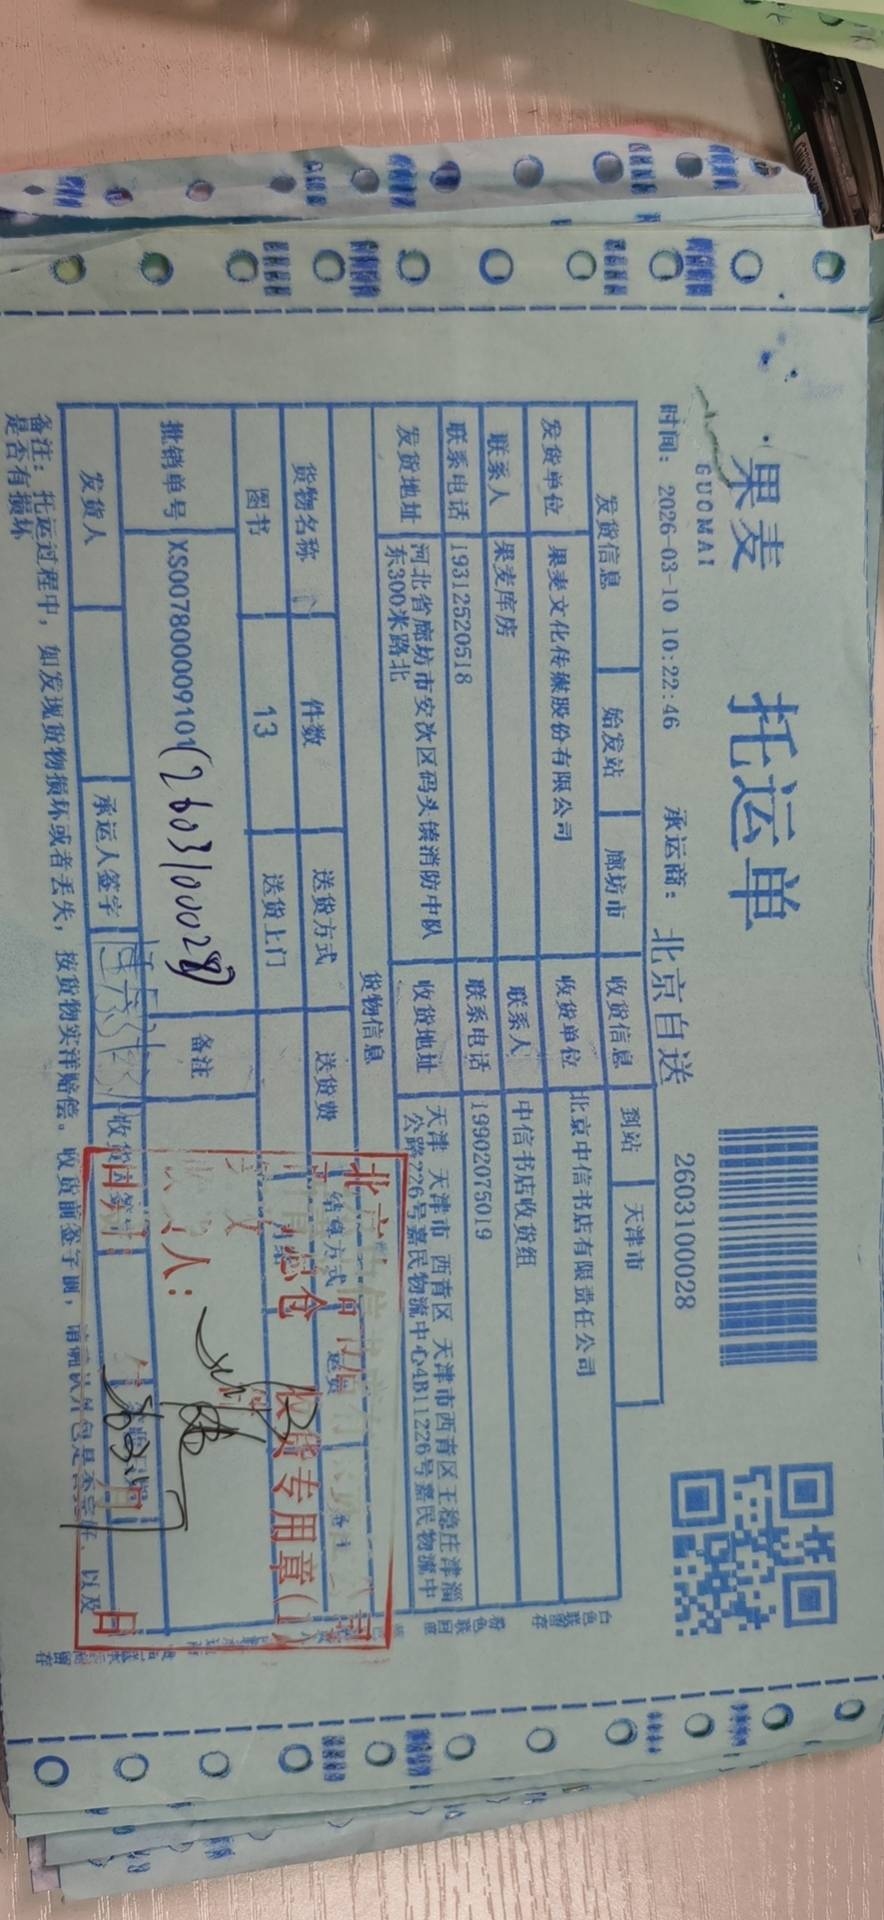 果麦
GUOMAI
托运单
时间: 2026-03-10 10:22:46 承运商: 北京自送 2603100028
发货信息 始发站 廊坊市 收货信息 到站 天津市
发货单位 果麦文化传媒股份有限公司 收货单位 北京中信书店有限责任公司
联系人 果麦库房 联系人 中信书店收货组
联系电话 19312520518 联系电话 19902075019
发货地址 河北省廊坊市安次区码头镇消防中队东300米路北 收货地址 天津 天津市 西青区 天津市西青区王稳庄津淄公路226号嘉民物流中心4B11226号嘉民物流中
货物信息
货物名称 件数 送货方式 送货费 结算方式 运费
图书 13 送货上门
批销单号 XS007800009101 (2603100028) 备注
发货人 承运人签字
备注: 托运过程中, 如发现货物损坏或者丢失, 按货物实洋赔偿。收货前签字前, 请确认外包是否完好, 以及
是否有损坏
收货专用章
人:
日